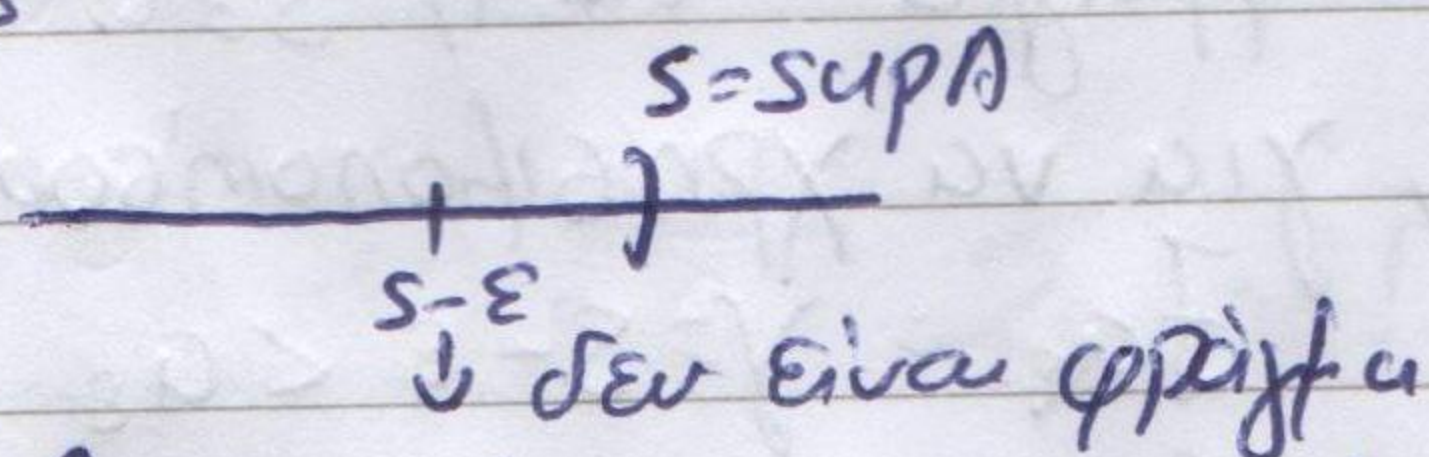 s=supA
s-ε
↓ δεν είναι φράγμα